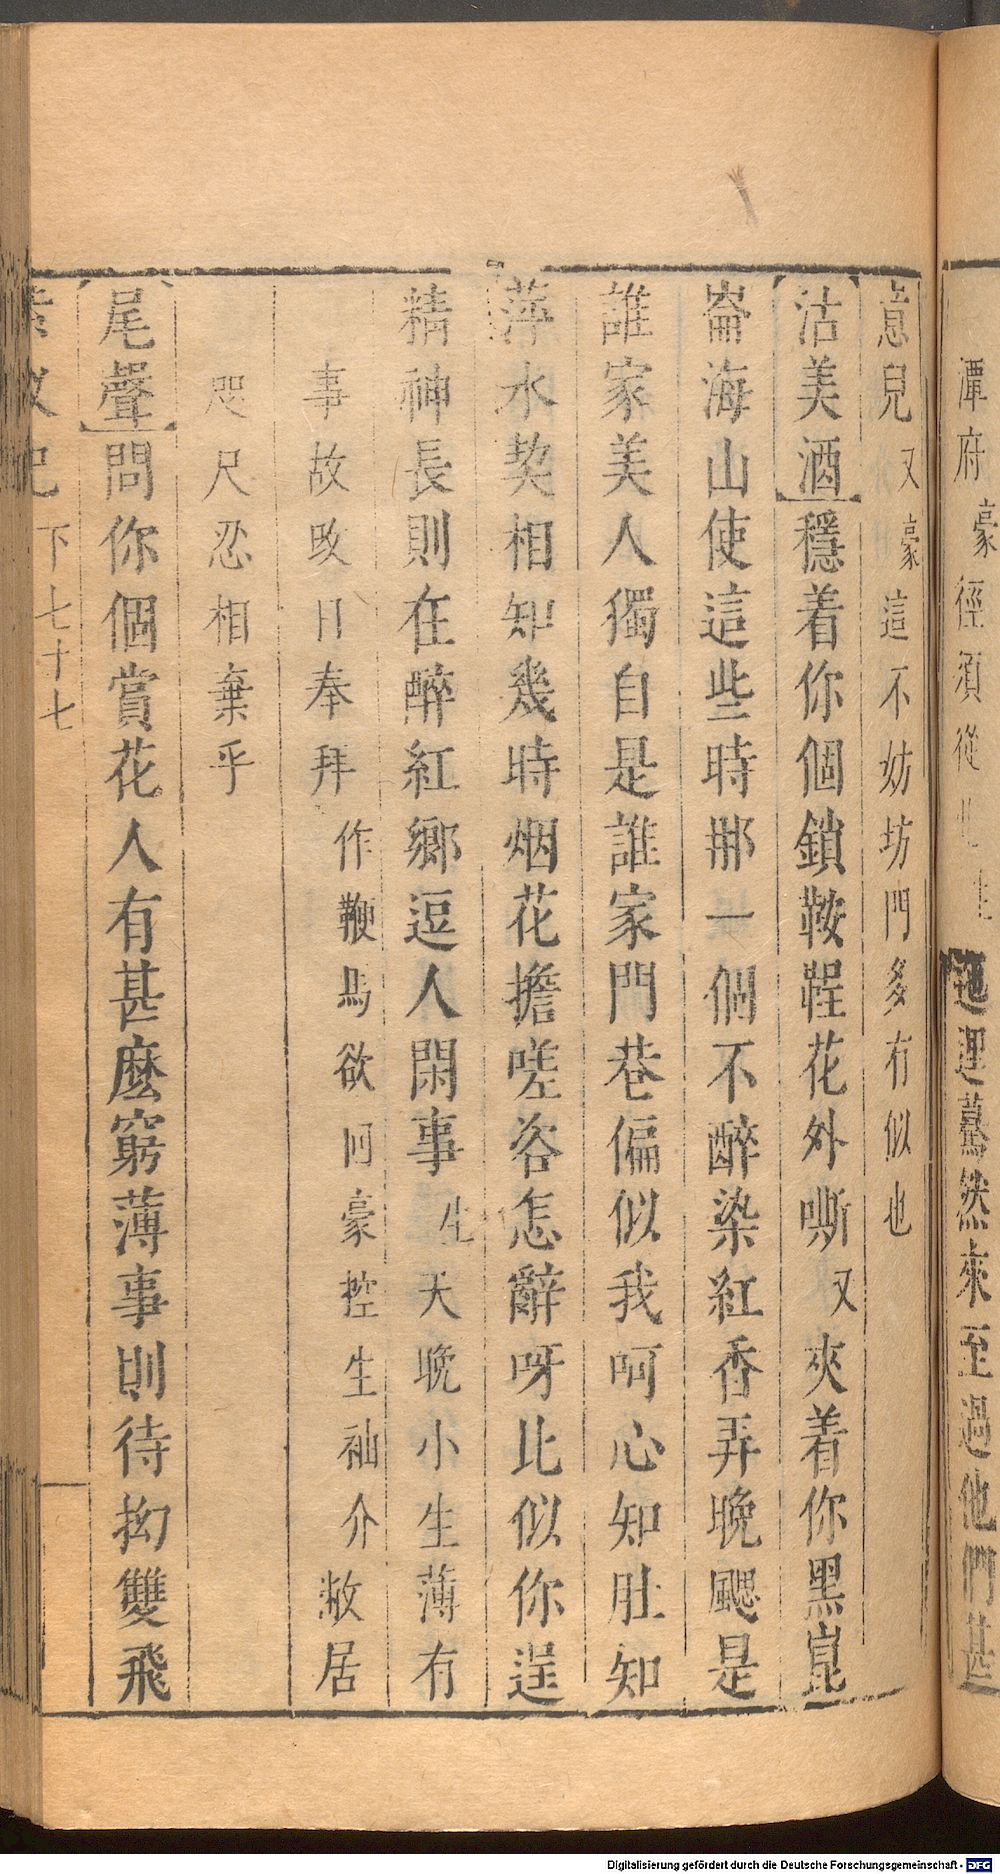 潭府豪徑須從
迤逗驀然來至過他們甚
意兒又豪這不妨坊門多有似也
沽美酒穩着你個鎖鞍鞓花外嘶又夾着你黑崑
崙海山使這些時那一個不醉染紅香弄晚颸是
誰家美人獨自是誰家門巷偏似我呵心知肚知
萍水契相知幾時烟花擔嗟咨怎辭呀比似你逞
精神長則在醉紅鄉逗人閑事生天晚小生薄有
事故改日奉拜作鞭馬欲回豪控生袖介敝居
咫尺忍相棄乎
尾聲問你個賞花人有甚麼窮薄事則待拗雙飛
釵記下七十七
Digitalisierung gefördert durch die Deutsche Forschungsgemeinschaft - DFG